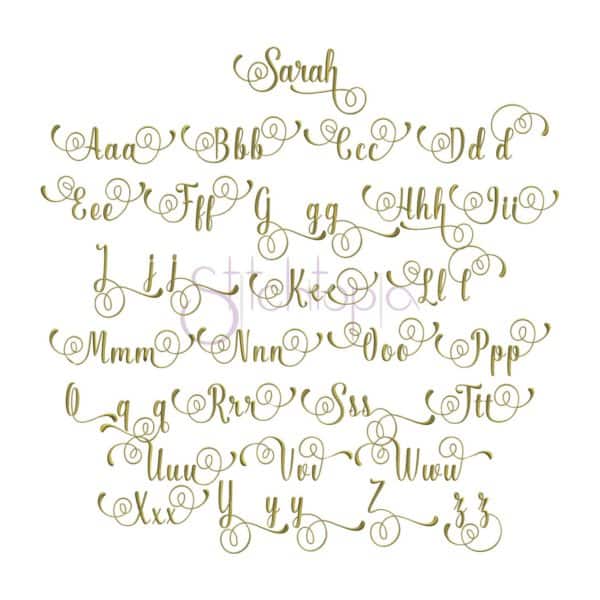 Sarah
Aaa Bbb Ccc Dd d
Eee Fff G gg Hhh Iii
J j j Kkk Ll l
Stitchtopia
Mmm Nnn Ooo Ppp
Q q q Rrr Sss Ttt
Uuu Vvv Www
Xxx Y y y Z z z